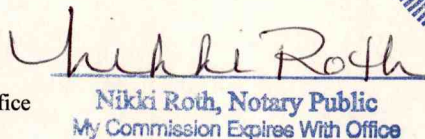 Nikki Roth
ffice Nikki Roth, Notary Public
My Commission Expires With Office